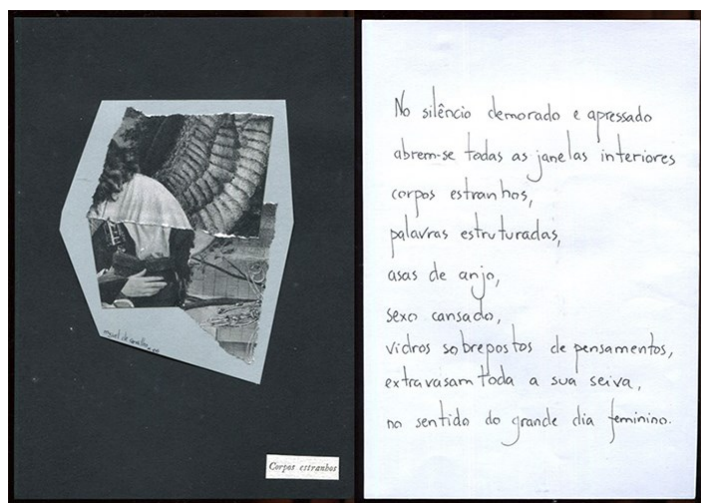 Corpos estranhos
No silêncio demorado e apressado
abrem-se todas as janelas interiores
corpos estranhos,
palavras estruturadas,
asas de anjo,
sexo cansado,
vidros sobrepostos de pensamentos,
extravasam toda a sua seiva,
no sentido do grande dia feminino.